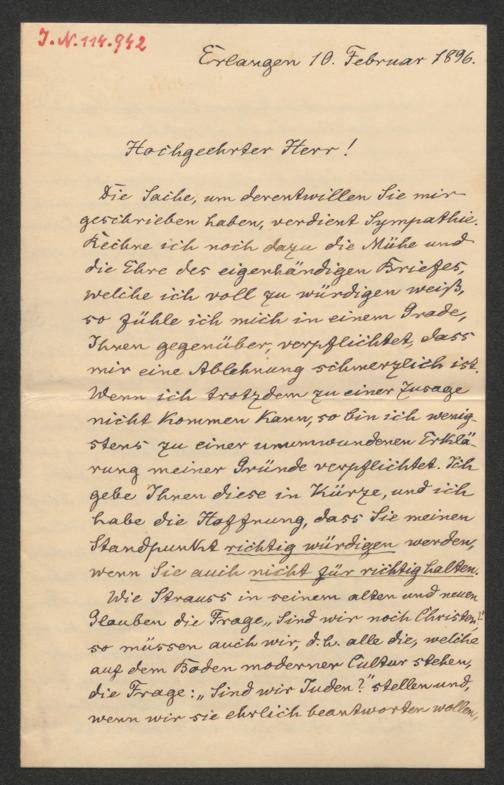 J.N.114.942
Erlangen 10. Februar 1896.
Hochgeehrter Herr!
Die Sache, um derentwillen Sie mir
geschrieben haben, verdient Sympathie.
Rechne ich noch dazu die Mühe und
die Ehre des eigenhändigen Briefes,
welche ich voll zu würdigen weiß,
so fühle ich mich in einem Grade,
Ihnen gegenüber, verpflichtet, dass
mir eine Ablehnung schmerzlich ist.
Wenn ich trotzdem zu einer Zusage
nicht kommen kann, so bin ich wenig-
stens zu einer unumwundenen Erklä-
rung meiner Gründe verpflichtet. Ich
gebe Ihnen diese in Kürze, und ich
habe die Hoffnung, dass Sie meinen
Standpunkt richtig würdigen werden,
wenn Sie auch nicht für richtig halten.
Wie Strauss in seinem alten und neuen
Glauben die Frage „Sind wir noch Christen?"
so müssen auch wir, d.h. alle die, welche
auf dem Boden moderner Cultur stehen,
die Frage: „Sind wir Juden?" stellen und,
wenn wir sie ehrlich beantworten wollen,